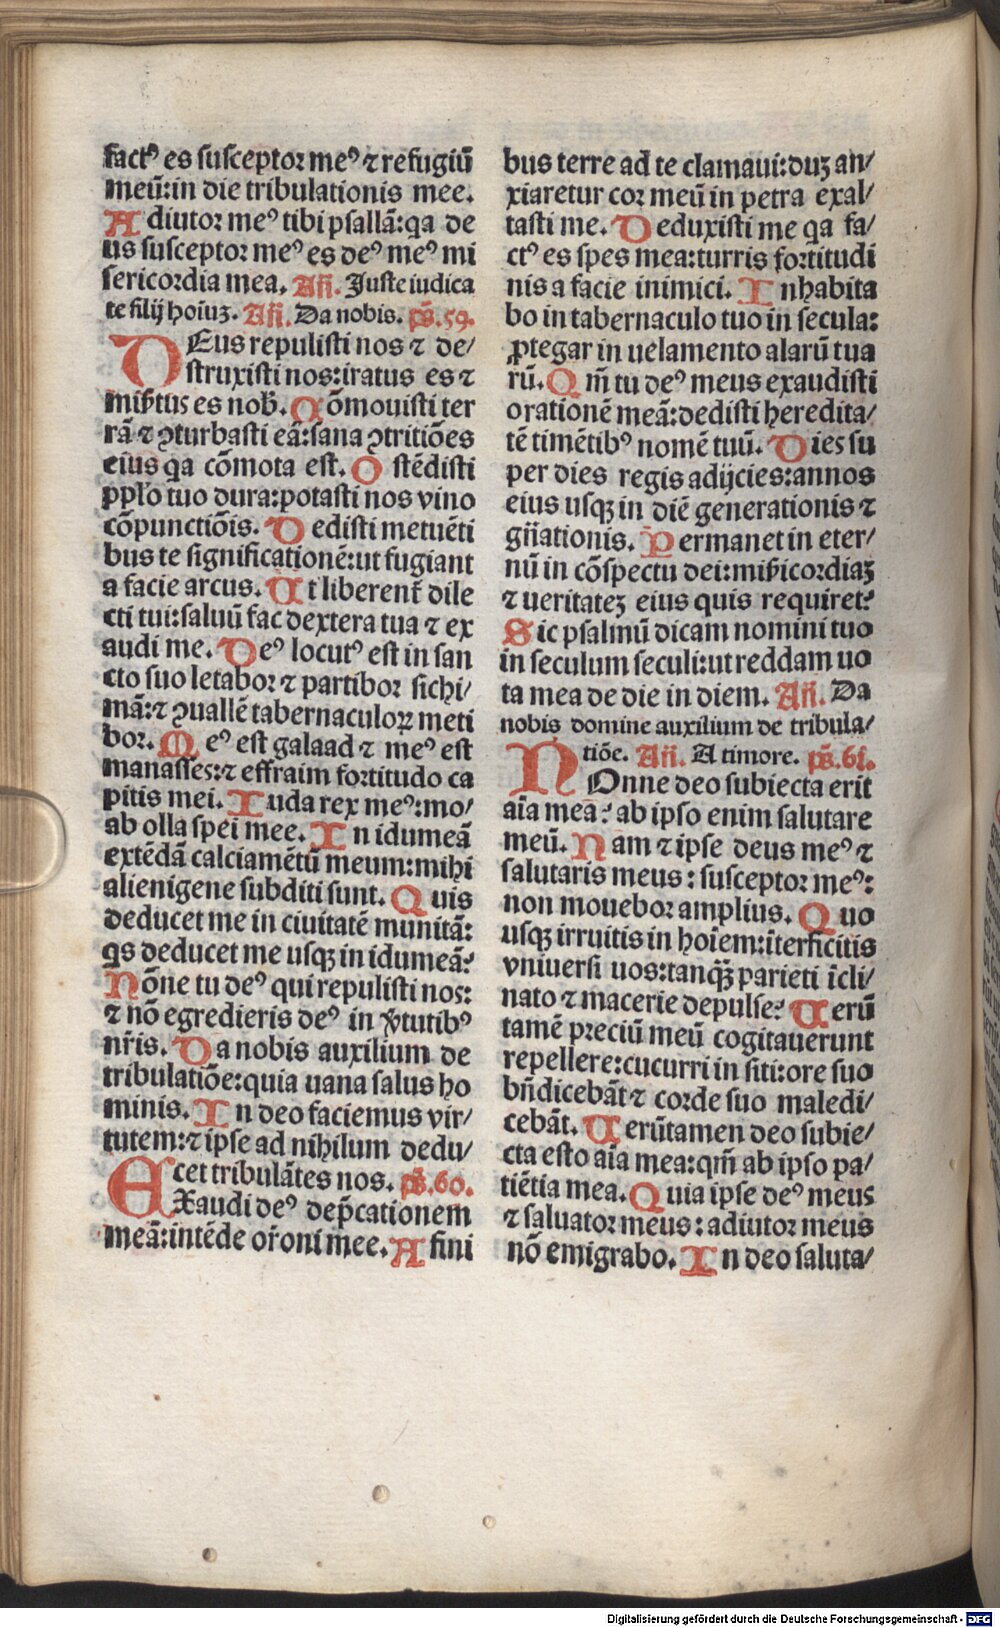 factꝰ es susceptor meꝰ ⁊ refugiū
meū:in die tribulationis mee.
Adiutor meꝰ tibi psallā:qa de
us susceptor meꝰ es deꝰ meꝰ mi
sericordia mea. Añ. Juste iudica
te filij hoiuꝫ. Añ. Da nobis. ps̄.59.
DEus repulisti nos ⁊ de/
struxisti nos:iratus es ⁊
mīs̄tus es nob̄. Cōmouisti ter
rā ⁊ ꝯturbasti eā:sana ꝯtritiōes
eius qa cōmota est. Ostēdisti
pplo tuo dura:potasti nos vino
cōpunctiōis. Dedisti metuēti
bus te significationē:ut fugiant
a facie arcus. Ut liberent̄ dile
cti tui:saluū fac dextera tua ⁊ ex
audi me. Deꝰ locutꝰ est in san
cto suo letabor ⁊ partibor sichi/
mā:⁊ ꝯuallē tabernaculoꝝ meti
bor. Meꝰ est galaad ⁊ meꝰ est
manasses:⁊ effraim fortitudo ca
pitis mei. Iuda rex meꝰ:mo/
ab olla spei mee. In idumeā
extēdā calciamētū meum:mihi
alienigene subditi sunt. Quis
deducet me in ciuitatē munitā:
qs deducet me usqꝫ in idumeā?
Nōne tu deꝰ qui repulisti nos:
⁊ nō egredieris deꝰ in v̄tutibꝰ
nr̄is. Da nobis auxilium de
tribulatiōe:quia uana salus ho
minis. In deo faciemus vir/
tutem:⁊ ipse ad nihilum dedu/
cet tribulātes nos. ps̄.60.
EXaudi deꝰ dep̄cationem
meā:intēde or̄oni mee. A fini
bus terre ad te clamaui:duꝫ an/
xiaretur cor meū in petra exal/
tasti me. Deduxisti me qa fa/
ctꝰ es spes mea:turris fortitudi
nis a facie inimici. Inhabita
bo in tabernaculo tuo in secula:
ꝓtegar in uelamento alarū tua
rū. Qm̄ tu deꝰ meus exaudisti
orationē meā:dedisti heredita/
tē timētibꝰ nomē tuū. Dies su
per dies regis adijcies:annos
eius usqꝫ in diē generationis ⁊
gn̄ationis. Permanet in eter/
nū in cōspectu dei:mīs̄icordiaꝫ
⁊ ueritateꝫ eius quis requiret?
Sic psalmū dicam nomini tuo
in seculum seculi:ut reddam uo
ta mea de die in diem. Añ. Da
nobis domine auxilium de tribula/
tiōe. Añ. A timore. ps̄.61.
NOnne deo subiecta erit
aīa mea? ab ipso enim salutare
meū. Nam ⁊ ipse deus meꝰ ⁊
salutaris meus: susceptor meꝰ:
non mouebor amplius. Quo
usqꝫ irruitis in hoīem:īterficitis
vniuersi uos:tanqꝫ parieti īcli/
nato ⁊ macerie depulse? Uerū
tamē preciū meū cogitauerunt
repellere:cucurri in siti:ore suo
bn̄dicebāt ⁊ corde suo maledi/
cebāt. Uerūtamen deo subie/
cta esto aīa mea:qm̄ ab ipso pa/
tiētia mea. Quia ipse deꝰ meus
⁊ saluator meus: adiutor meus
nō emigrabo. In deo saluta/
Digitalisierung gefördert durch die Deutsche Forschungsgemeinschaft - DFG